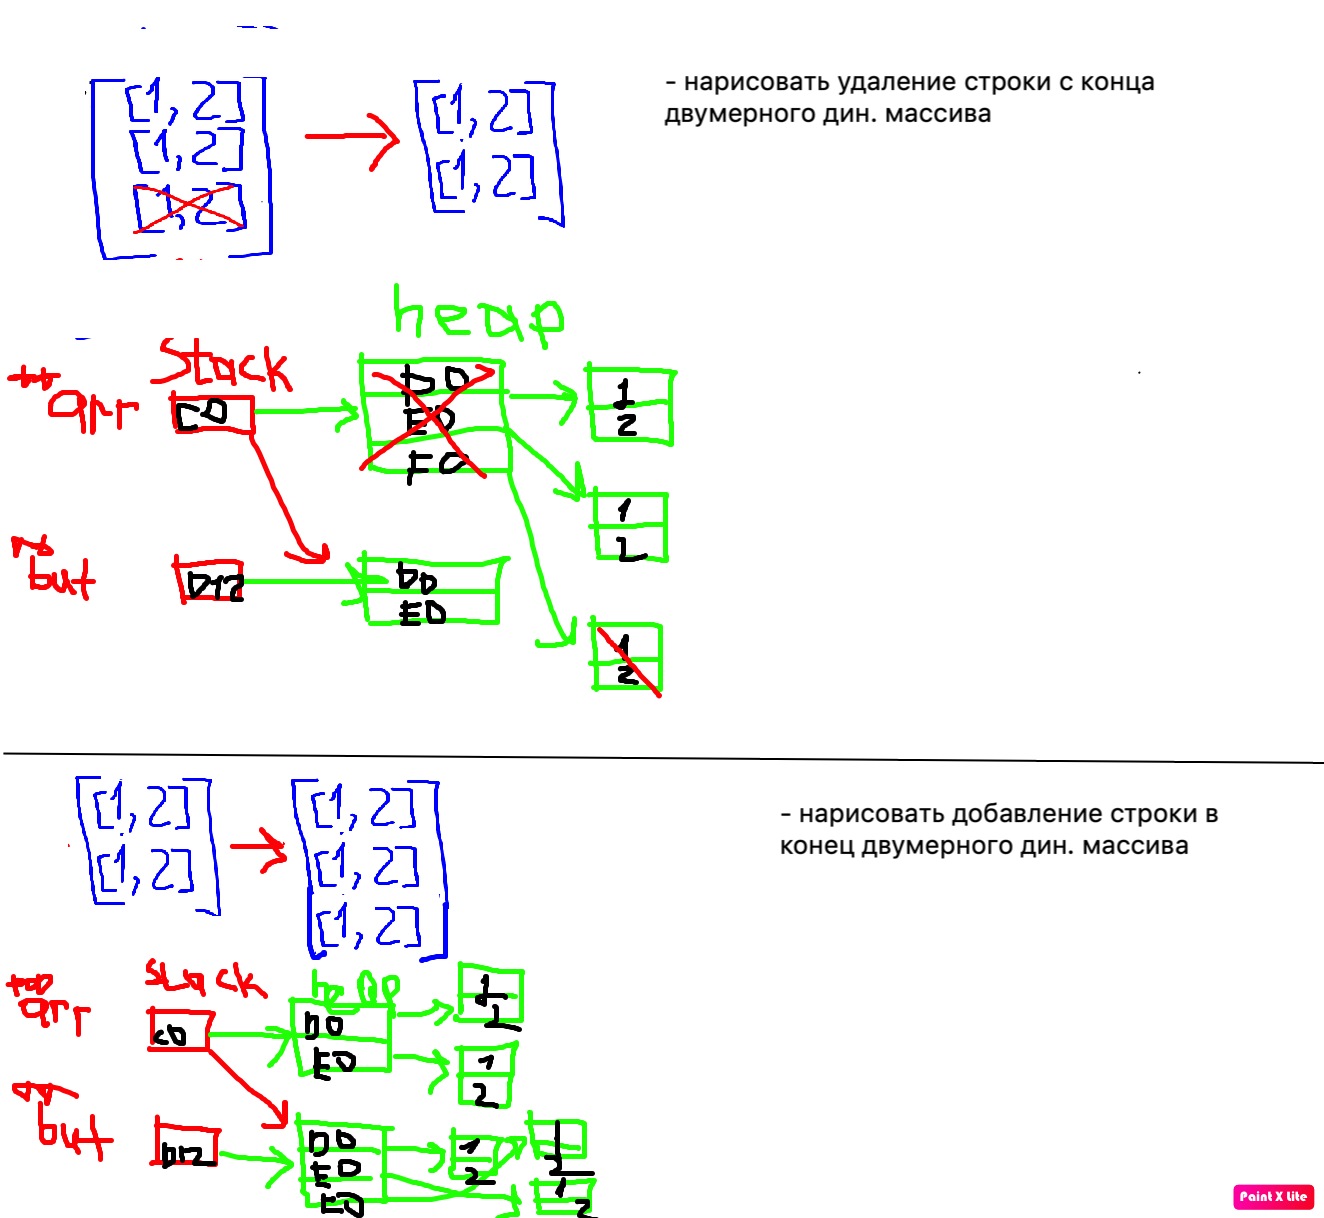 [1, 2]
[1, 2]
[1, 2]
[1, 2]
[1, 2]
- нарисовать удаление строки с конца
двумерного дин. массива
heap
Stack
** arr
C0
D0
E0
F0
1
2
1
2
but
D12
D0
E0
1
2
[1, 2]
[1, 2]
[1, 2]
[1, 2]
[1, 2]
- нарисовать добавление строки в
конец двумерного дин. массива
stack
heap
arr
C0
D0
E0
1
2
1
2
but
D12
D0
E0
F0
1
2
1
2
Paint X Lite